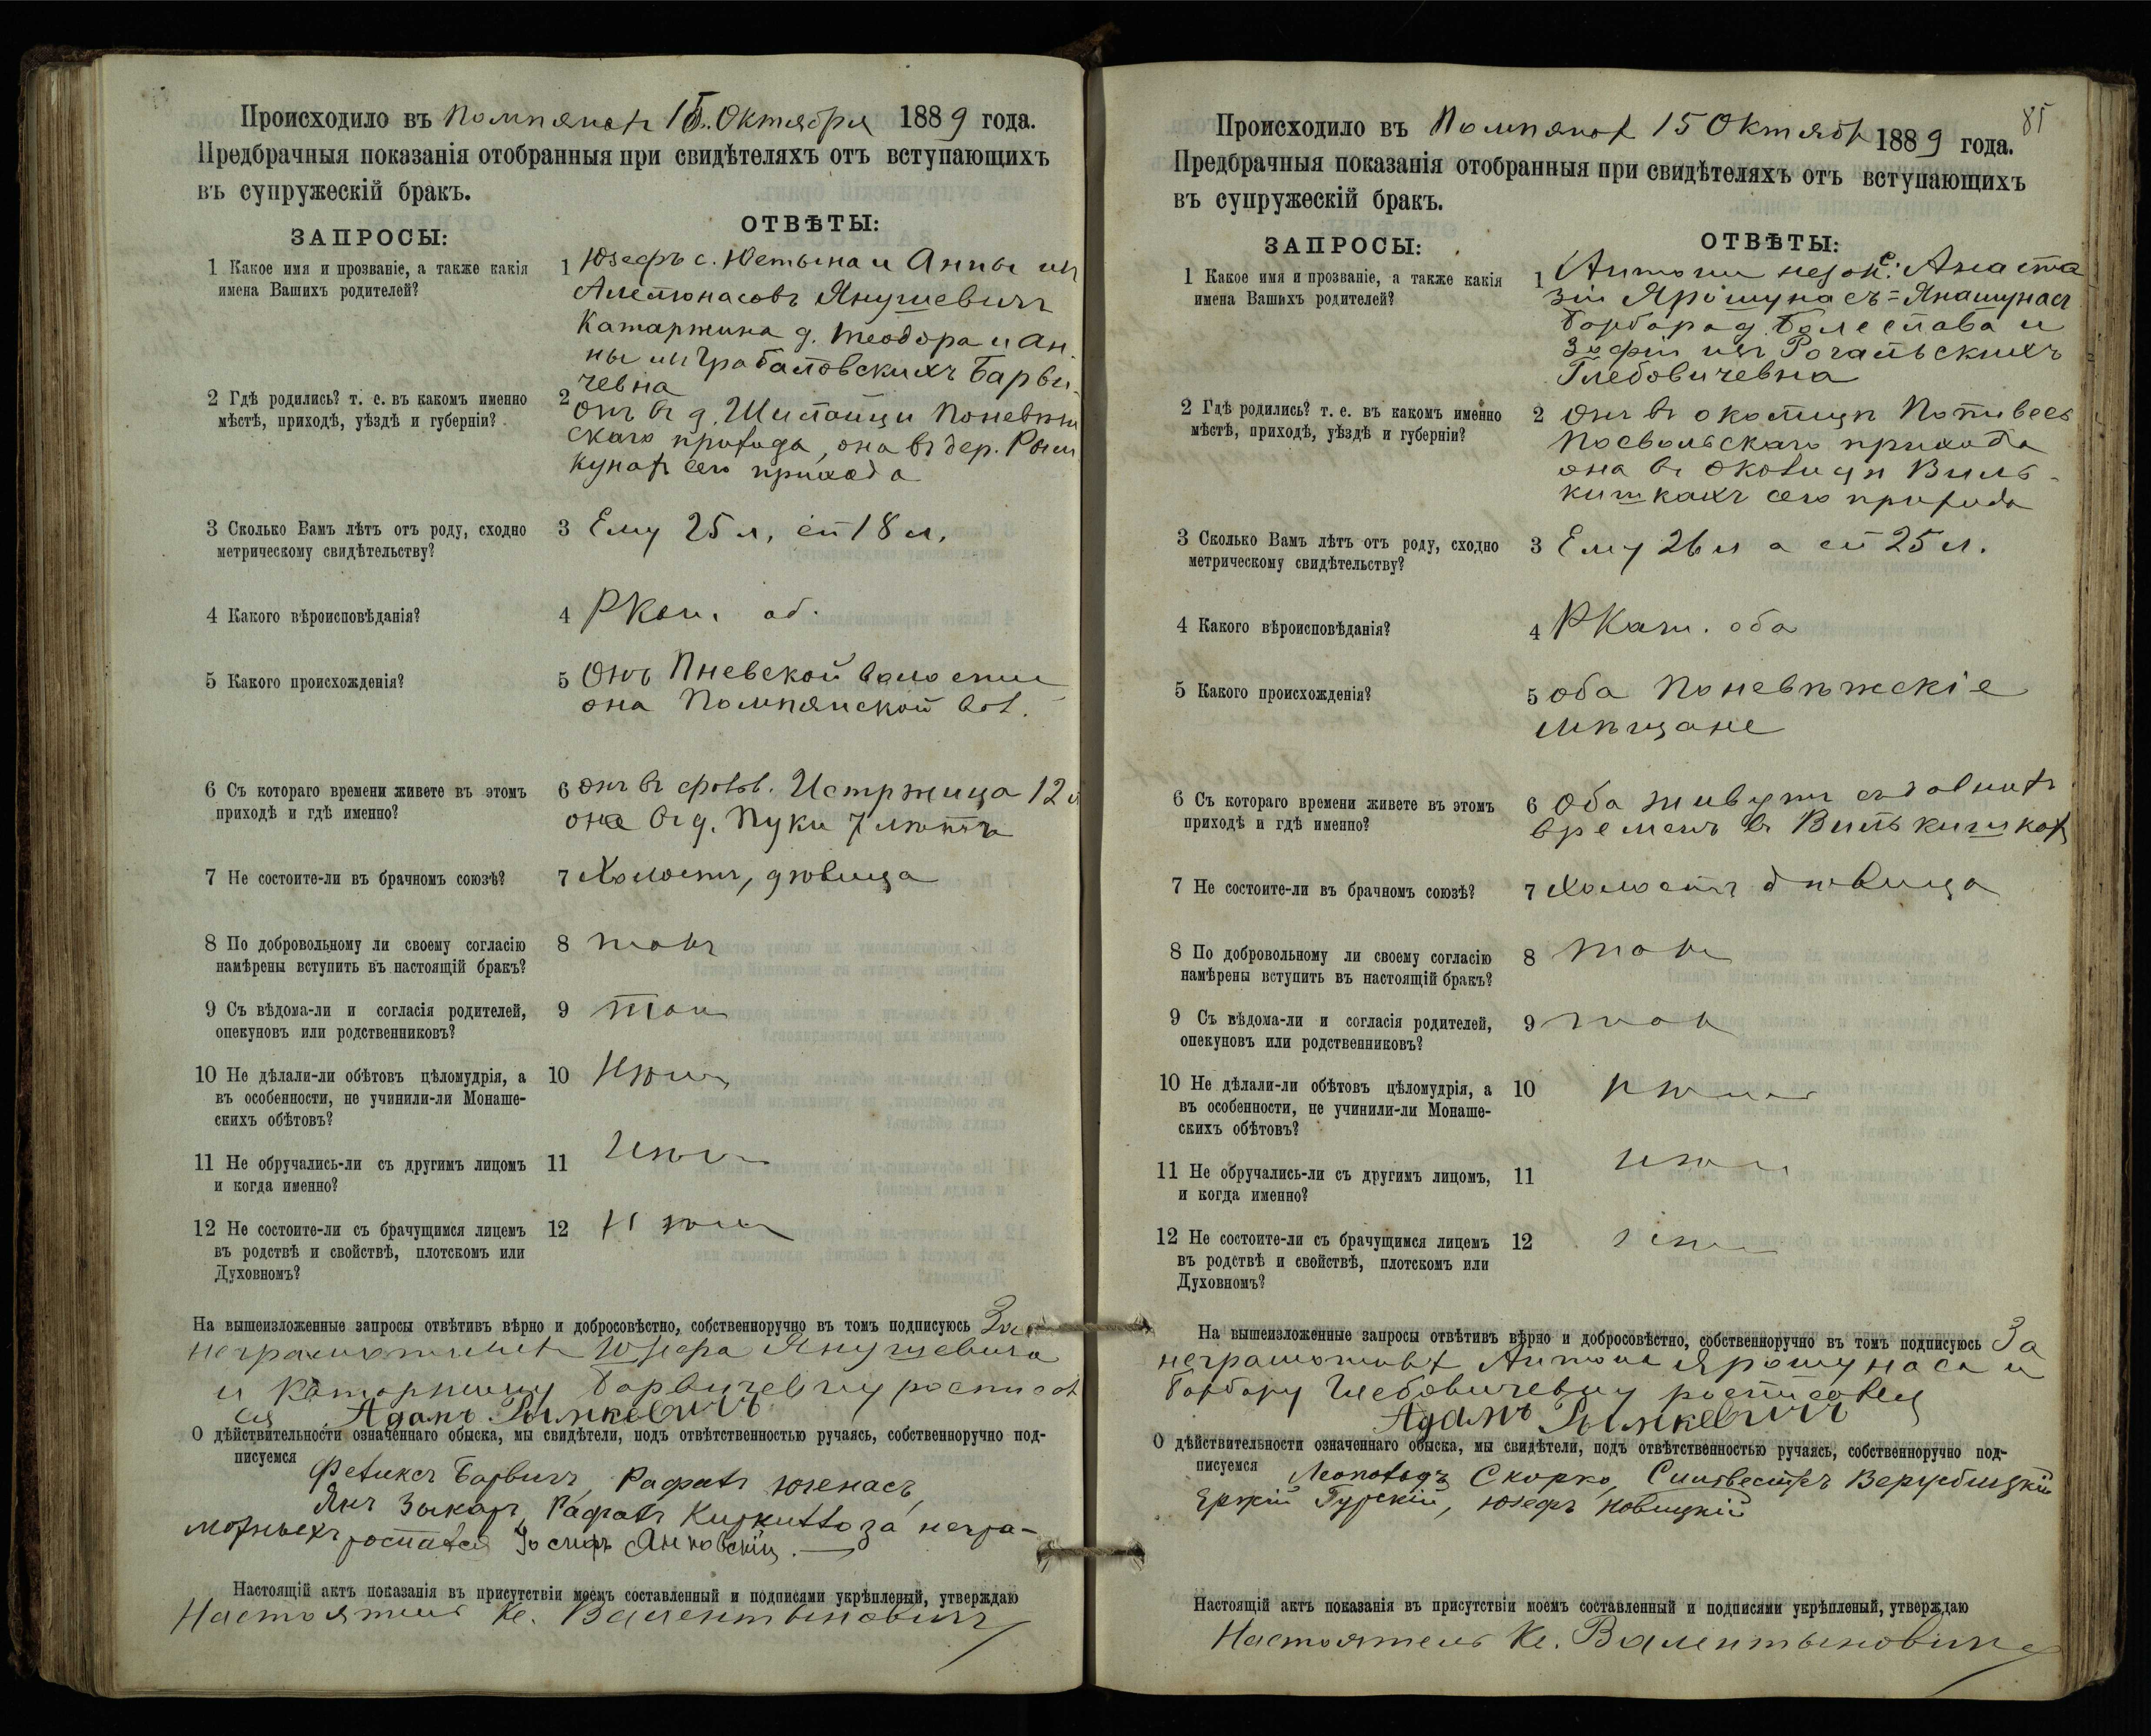 Происходило въ Помпянах 15. Октября 1889 года.
Предбрачныя показанія отобранныя при свидѣтеляхъ отъ вступающихъ
въ супружескій бракъ.
ЗАПРОСЫ:
ОТВѢТЫ:
1 Какое имя и прозваніе, а также какія
имена Вашихъ родителей?
1 Юзефъ с. Юстына и Анны из
Янушевичъ
Катаржина д. Теодора и Ан-
ны из Грабаловскихъ Барви-
чевна
2 Гдѣ родились? т. е. въ какомъ именно
мѣстѣ, приходѣ, уѣздѣ и губерніи?
2 Онъ въ д. Поневѣж
скаго прихода, она въ дер.
сего прихода
3 Сколько Вамъ лѣтъ отъ роду, сходно
метрическому свидѣтельству?
3 Ему 25 л, ей 18 л.
4 Какого вѣроисповѣданія?
4 РКат. об.
5 Какого происхожденія?
5 Онъ Пневской волости
она Помпянской вол.
6 Съ котораго времени живете въ этомъ
приходѣ и гдѣ именно?
6 онъ въ фольв. Истржица 12 л
она въ д. Пуки 7 лѣтъ
7 Не состоите-ли въ брачномъ союзѣ?
7 Холостъ, дѣвица
8 По добровольному ли своему согласію
намѣрены вступить въ настоящій бракъ?
8 такъ
9 Съ вѣдома-ли и согласія родителей,
опекуновъ или родственниковъ?
9 такъ
10 Не дѣлали-ли обѣтовъ цѣломудрія, а
въ особенности, не учинили-ли Монаше-
скихъ обѣтовъ?
10 Нѣтъ
11 Не обручались-ли съ другимъ лицомъ
и когда именно?
11 Нѣтъ
12 Не состоите-ли съ брачущимся лицемъ
въ родствѣ и свойствѣ, плотскомъ или
Духовномъ?
12 Нѣтъ
На вышеизложенные запросы отвѣтивъ вѣрно и добросовѣстно, собственноручно въ томъ подписуюсь За
неграмотныхъ Юзефа Янушевича
и Катаржину Барвичевну росписал
ся Адамъ Рымкевичъ
О дѣйствительности означеннаго обыска, мы свидѣтели, подъ отвѣтственностью ручаясь, собственноручно под-
писуемся Феликсъ Барвичъ, Рафалъ Юченасъ,
Янъ Рафалъ за негра-
мотныхъ роспался Іосифъ Янковскій.
Настоящій актъ показанія въ присутствіи моемъ составленный и подписями укрѣпленый, утверждаю
Настоятель Кс. Валентыновичъ
85
Происходило въ Помпянах 15 Октябр 1889 года.
Предбрачныя показанія отобранныя при свидѣтеляхъ отъ вступающихъ
въ супружескій бракъ.
ЗАПРОСЫ:
ОТВѢТЫ:
1 Какое имя и прозваніе, а также какія
имена Вашихъ родителей?
1 Антони незак. с. Анаста
зіи Ярошунасъ=Янашунасъ
Барбара д. Болеслава и
Зофіи изъ Рогальскихъ
Глебовичевна
2 Гдѣ родились? т. е. въ какомъ именно
мѣстѣ, приходѣ, уѣздѣ и губерніи?
2 Онъ въ околицѣ
Посвольскаго прихода
она въ околицѣ Виль-
кишкахъ сего прихода
3 Сколько Вамъ лѣтъ отъ роду, сходно
метрическому свидѣтельству?
3 Ему 26 л а ей 25 л.
4 Какого вѣроисповѣданія?
4 РКат. оба
5 Какого происхожденія?
5 оба Поневѣжскіе
мѣщане
6 Съ котораго времени живете въ этомъ
приходѣ и гдѣ именно?
6 Оба живутъ съ давнихъ
временъ въ Вилькишках
7 Не состоите-ли въ брачномъ союзѣ?
7 Холостъ дѣвица
8 По добровольному ли своему согласію
намѣрены вступить въ настоящій бракъ?
8 такъ
9 Съ вѣдома-ли и согласія родителей,
опекуновъ или родственниковъ?
9 такъ
10 Не дѣлали-ли обѣтовъ цѣломудрія, а
въ особенности, не учинили-ли Монаше-
скихъ обѣтовъ?
10 нѣтъ
11 Не обручались-ли съ другимъ лицомъ,
и когда именно?
11 нѣтъ
12 Не состоите-ли съ брачущимся лицемъ
въ родствѣ и свойствѣ, плотскомъ или
Духовномъ?
12 нѣтъ
На вышеизложенные запросы отвѣтивъ вѣрно и добросовѣстно, собственноручно въ томъ подписуюсь За
неграмотныхъ Антона Ярошунаса и
Барбару Глебовичевну росписался
Адамъ Рымкевичъ
О дѣйствительности означеннаго обыска, мы свидѣтели, подъ отвѣтственностью ручаясь, собственноручно под-
писуемся Леопольдъ Скорко, Сильвестръ Вержблицкій
Ержій Гурскій, Юзефъ Новицкій
Настоящій актъ показанія въ присутствіи моемъ составленный и подписями укрѣпленый, утверждаю
Настоятель Кс. Валентыновичъ